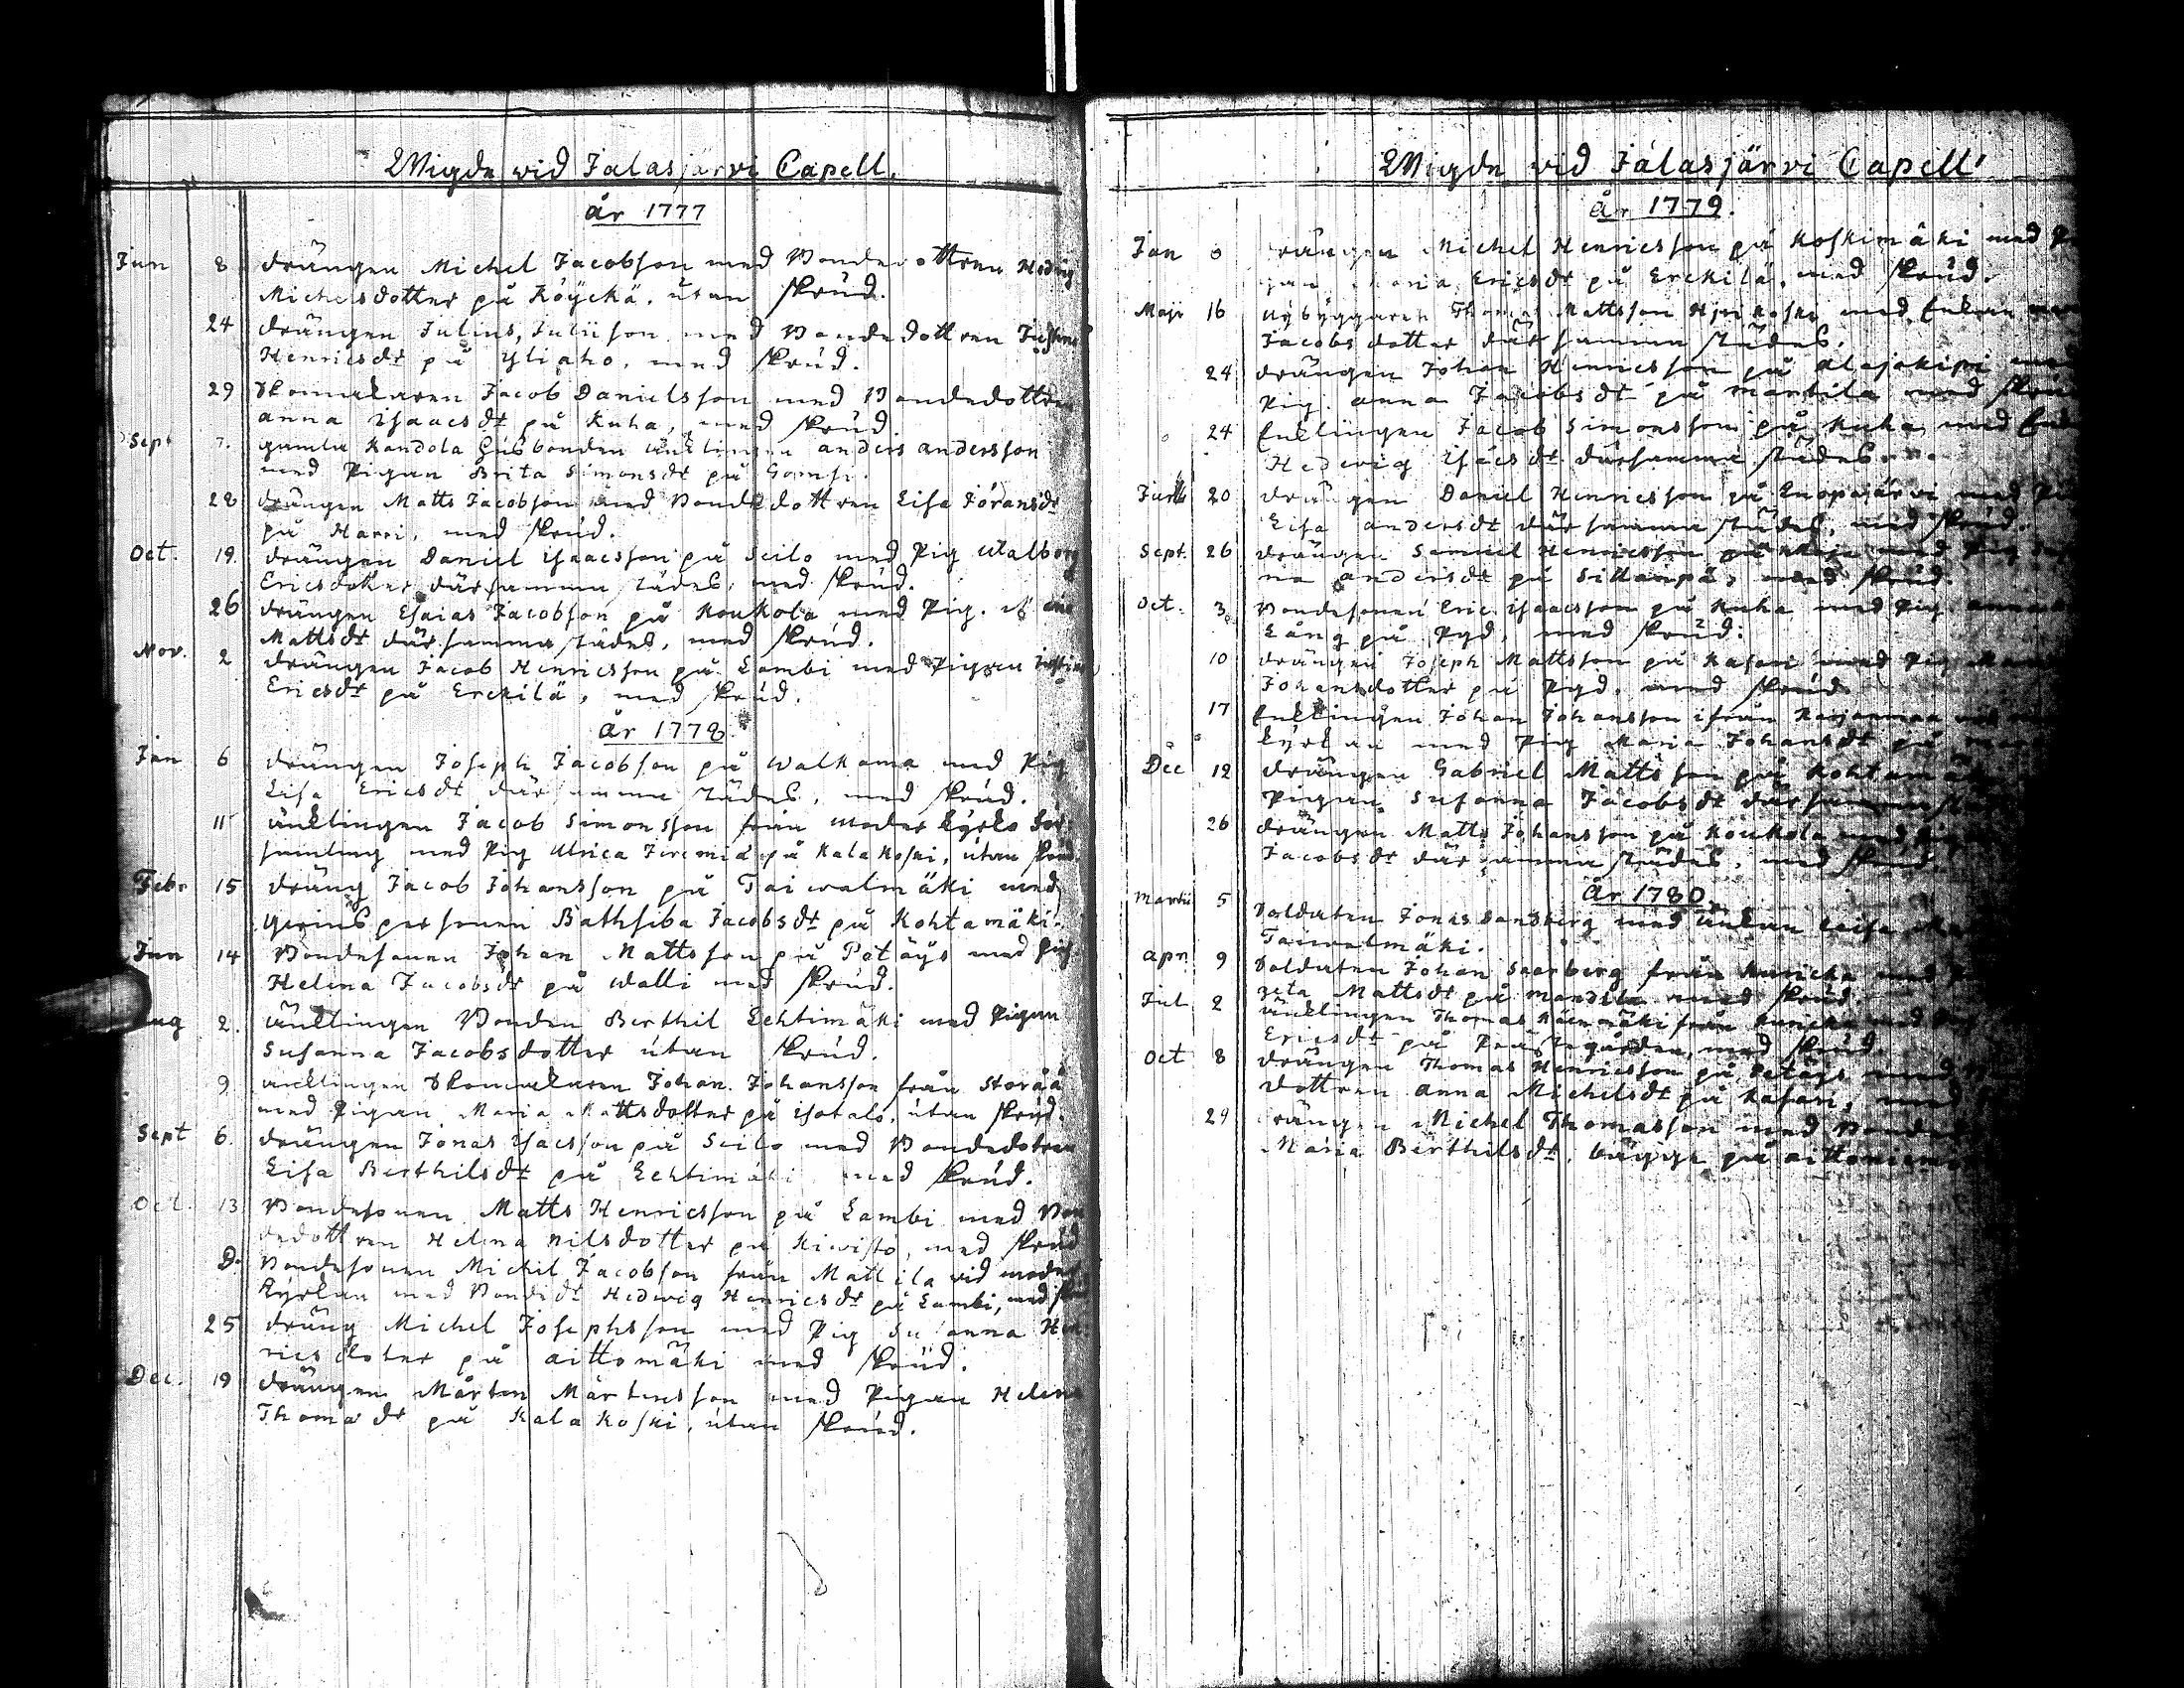 Wigde wid Jalasjärvi Capell.
år 1777
Jun 8 drängen Michel Jacobsson med Bondedottren Hedvig
Michelsdotter på Köyckä, utan skrud.
24 drängen Julius Juliison med Bondedottren Justina
Henricsdr på Yliaho, med skrud.
29 Skomakaren Jacob Danielsson med Bondedottren
Anna Isaacsdr på Kuha, med skrud
Sept 7. gamla Kandola Husbonden änklingen Anders Andersson
med Pigan Brita Simonsdr på
28 drängen Matts Jacobsson med Bondedottren Lisa Jöransdr
på Harri, med skrud.
Oct. 19. drängen Daniel Isaacsson på Seilo med Pig Walborg
Ericsdotter därsammastädes, med skrud.
26 drängen Esaias Jacobsson på Koukola med Pig.
Mattsdr därsammastädes, med skrud.
Nov. 2 drängen Jacob Henricsson på Lambi med Pigan Justina
Ericsdr på Erckilä, med skrud.
år 1778.
Jan 6 drängen Joseph Jacobsson på Walkama med Pig
Lisa Ericsdr därsammastädes, med skrud.
11 änklingen Jacob Simonsson från Moderkyrko för-
samling med Pig Ulrica Jeremiæ på Kalakoski, utan skrud.
Febr 15 dräng Jacob Johansson på Taiwalmäki med
qwinspersonen Bathsiba Jacobsdr på Kohtamäki.
Jun 14 Bondesonen Johan Mattsson på Potäys med Pig.
Helena Jacobsdr på Walli med skrud.
Aug 2. änklingen Bonden Berthil Lehtimäki med Pigan
Susanna Jacobsdotter utan skrud.
9. änklingen Skomakaren Johan Johansson från Storåå
med Pigan Maria Mattsdotter på Isotalo, utan skrud.
Sept 6. drängen Jonas Isacsson på Seilo med Bondedotren
Lisa Berthilsdr på Lehtimäki med skrud.
Oct. 13 Bondesonen Matts Henricsson på Lambi med Bon
dedottren Helena Nilsdotter på Kiwistö, med skrud
D. Bondesonen Michel Jacobsson från Mattila vid moder
Kyrkan med Bondedr Hedwig Henricsdr på Lambi, med skrud
25 dräng Michel Josephsson med Pig Susanna Hen
ricsdoter på Aittomäki med skrud.
Dec. 19 drängen Mårten Mårtensson med Pigan Helena
Thomædr på Kalakoski, utan skrud.
Wigde vid Jalasjärvi Capell
år 1779.
Jan 6 drängen Michel Henricsson på Koskimäki med Pi
gan Maria Ericsdr på Erckilä, med skrud.
Maji 16 Nybyggaren Thomas Mattsson Hjrikoski med Enkan
Jacobsdotter därsammastädes.
24 drängen Johan Henricsson på Alajokipi med
Pig. Anna Jacobsdr på Marttila med skrud
24 Enklingen Jacob Simonsson på Kuha med Enk
Hedewig Isacsdr därsammastädes.
20 drängen Daniel Henricsson på Luopajärvi med Pi
Lisa Andersdr därsammastädes, med skrud.
Sept. 26 drängen Samuel Henricsson på med Pig
na Andersdr på Sillanpä, med skrud.
Oct. 3. Bondesonen Eric Isaacsson på Kuha med Pig. Anna
Lång på Pgd, med skrud:
10 drängen Joseph Mattsson på Kasari med Pig
Johansdotter på Pgd, med skrud
17 Enklingen Johan Johansson ifrån
Kyrkan med Pig Maria Johansdr på
Dec 12 drängen Gabriel Mattsson på Kohtamäk
Pigan Susanna Jacobsdr därsammast
26 drängen Matts Johansson på Koukola med Pig
Jacobsdr därsammastädes, med skrud.
år 1780
Martii 5 Soldaten Jonas Sandberg med änkan Lisa
Taiwalmäki.
Apr. 9 Soldaten Johan Saarberg från Kuricka med
reta Mattsdr på Mandila med skrud.
Jul 2 änklingen Thomas från Kuricka med
Ericsdr på Prästegården, med skrud.
Oct 8 drängen Thomas Henricsson på Petäys med
dottren Anna Michelsdr på Kasari, med
29 drängen Michel Thomasson med Bonde
Maria Berthilsdr, bägge på